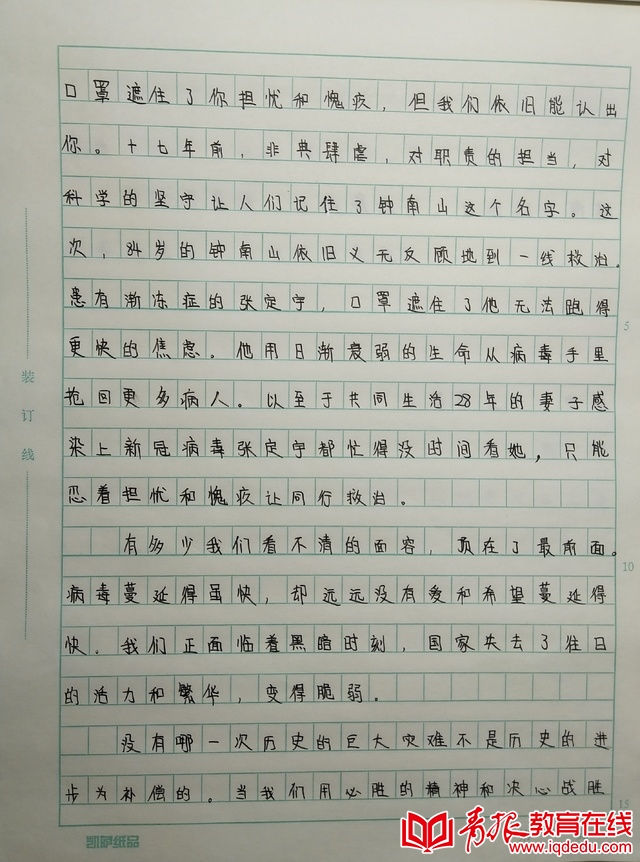 口罩遮住了你担忧和愧疚，但我们依旧能认出
你。十七年前，非典肆虐，对职责的担当，对
科学的坚守让人们记住了钟南山这个名字。这
次，84岁的钟南山依旧义无反顾地到一线救治。
患有渐冻症的张定宇，口罩遮住了他无法跑得
更快的焦虑。他用日渐衰弱的生命从病毒手里
抢回更多病人。以至于共同生活28年的妻子感
染上新冠病毒张定宇都忙得没时间看她，只能
忍着担忧和愧疚让同行救治。
有多少我们看不清的面容，顶在了最前面。
病毒蔓延得虽快，却远远没有爱和希望蔓延得
快。我们正面临着黑暗时刻，国家失去了往日
的活力和繁华，变得脆弱。
没有哪一次历史的巨大灾难不是历史的进
步为补偿的。当我们用必胜的精神和决心战胜
装订线
5
10
15
青报教育在线
www.iqdedu.com